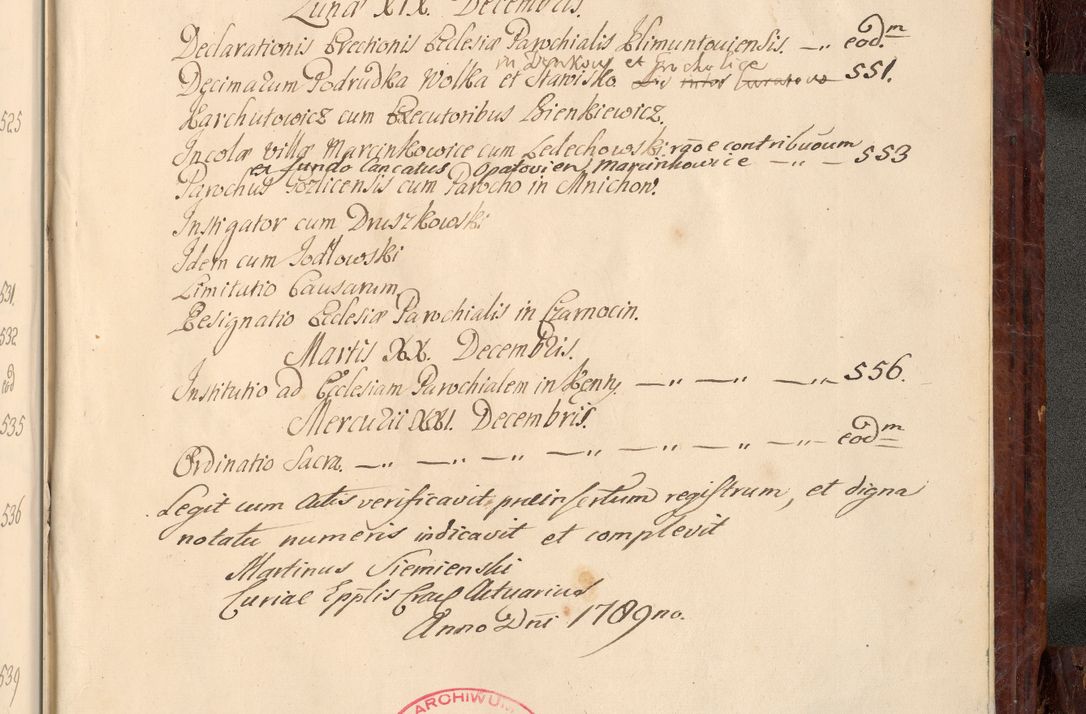 Lunæ XIX. Decembris.
Declarationis Erectionis Ecclesiæ Parochialis Klimuntoviensis. —„ eod.m
in Denkow et
Decimarum Podrudka Wolka et Stawisko 551.
Harchutowicz cum Executoribus Bienkiewicz.
Incolæ villæ Marcinkowice cum Ledechowski rãoe contribuõum
ex fundo Cancatus Opatovien Marcinkowice —„— 553
Parochus Gozlicensis cum Parocho in Mnichow.
Instigator cum Druszkowski
Idem cum Jodlowski
Limitatio Causarum
Resignatio Ecclesiæ Parochialis in Czarnocin.
Martis XX. Decembris.
Institutio ad Ecclesiam Parochialem in Kenty —„ —„ —„ 556.
Mercurii XXI. Decembris.
Ordinatio Sacra. —„ —„ —„ —„ —„ —„ —„ eodm
Legit cum Actis verificavit præinsertum registrum, et digna
notatu numeris indicavit et complevit
Martinus Siemienski
Curiae Epplis Crac Actuarius
Anno Dni 1789no.
525
531.
532
eod
535
536
539
ARCHIWUM